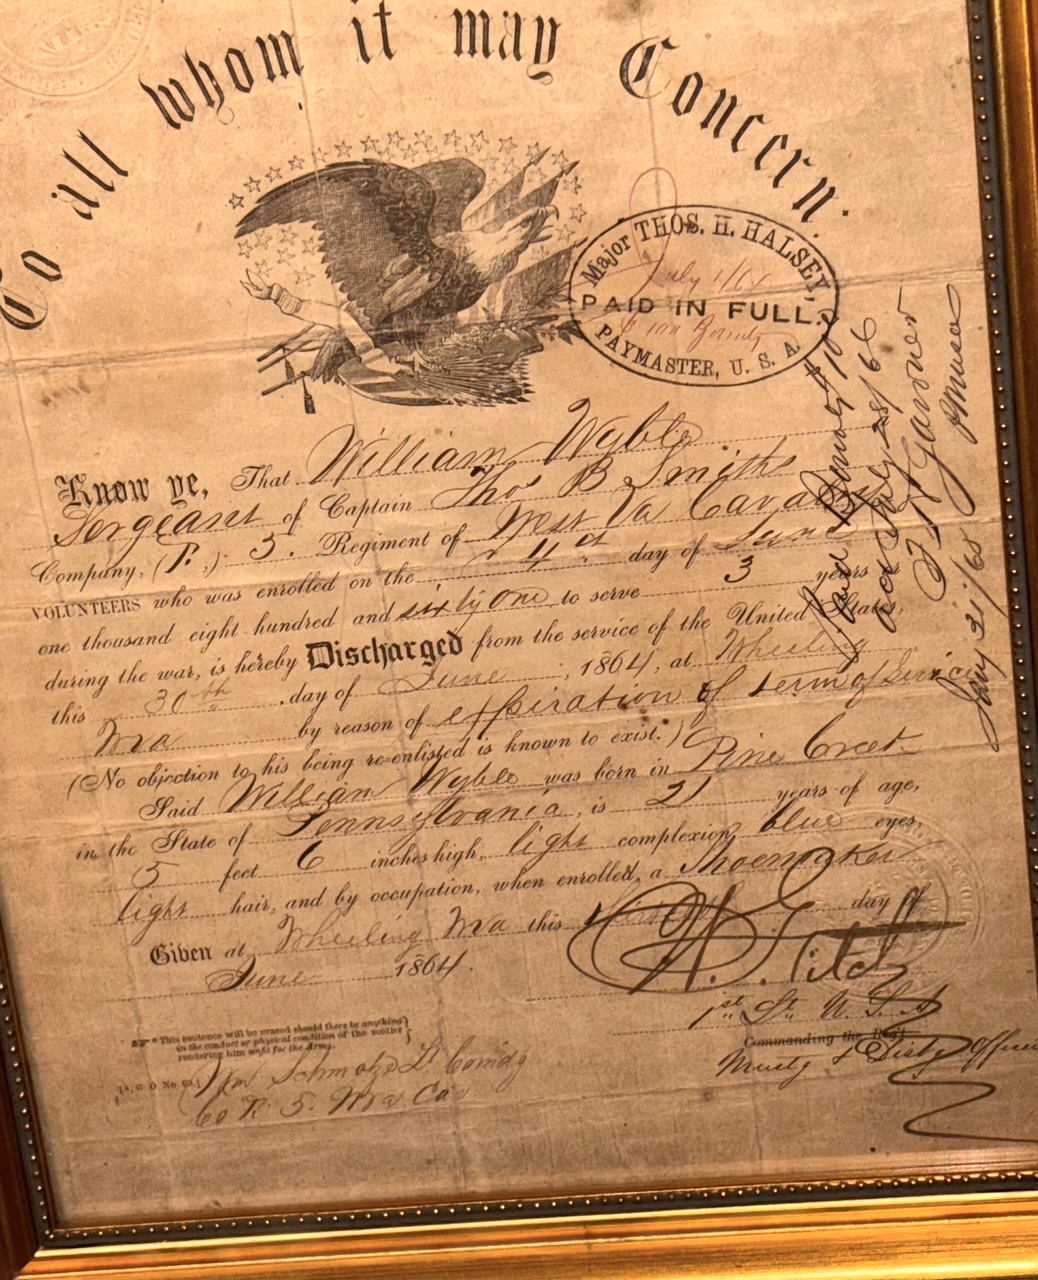 To all whom it may Concern:
Major THOS. H. HALSEY,
July 1/64
PAID IN FULL.
PAYMASTER, U. S. A.
Know ye, That William Wyble
Sergeant of Captain Thos B Smiths
Company, (F.) 5. Regiment of West Va Cavalry
VOLUNTEERS who was enrolled on the 4th day of June
one thousand eight hundred and sixty one to serve 3 years or
during the war, is hereby Discharged from the service of the United States,
this 30th day of June, 1864, at Wheeling
W Va by reason of expiration of term of Service
(No objection to his being re-enlisted is known to exist.*)
Said William Wyble was born in Pine Creek
in the State of Pennsylvania, is 21 years of age,
5 feet 6 inches high, light complexion, blue eyes,
light hair, and by occupation, when enrolled, a Shoemaker
Given at Wheeling W Va this day of
June 1864.
1st Lt. U S A
Commanding the Reg't
Musty & Disbg Officer
* This sentence will be erased should there be anything
in the conduct or physical condition of the soldier
rendering him unfit for the Army.
[A. G. O. No. 99.]
Wm Lt Comdg
5. W Va Ca
Paid
act July 28/66